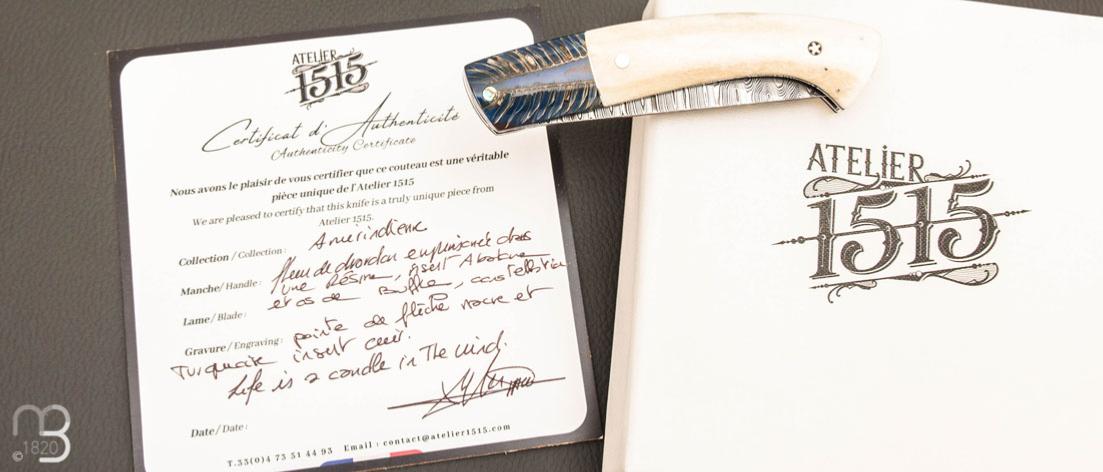 ATELIER
1515
Certificat d'Authenticité
Authenticity Certificate
Nous avons le plaisir de vous certifier que ce couteau est une véritable
pièce unique de l'Atelier 1515
We are pleased to certify that this knife is a truly unique piece from
Atelier 1515.
Collection / Collection : Amérindienne
Manche / Handle : fleur de chardon emprisonnée dans
une Résine, insert
et os de Buffle,
Lame / Blade :
Gravure / Engraving : pointe de flèche nacre et
Turquoise insert cuir.
Life is a candle in The wind.
Date / Date :
T.33(0)4 73 51 44 93 Email : contact@atelier1515.com
ATELIER
1515
©1820